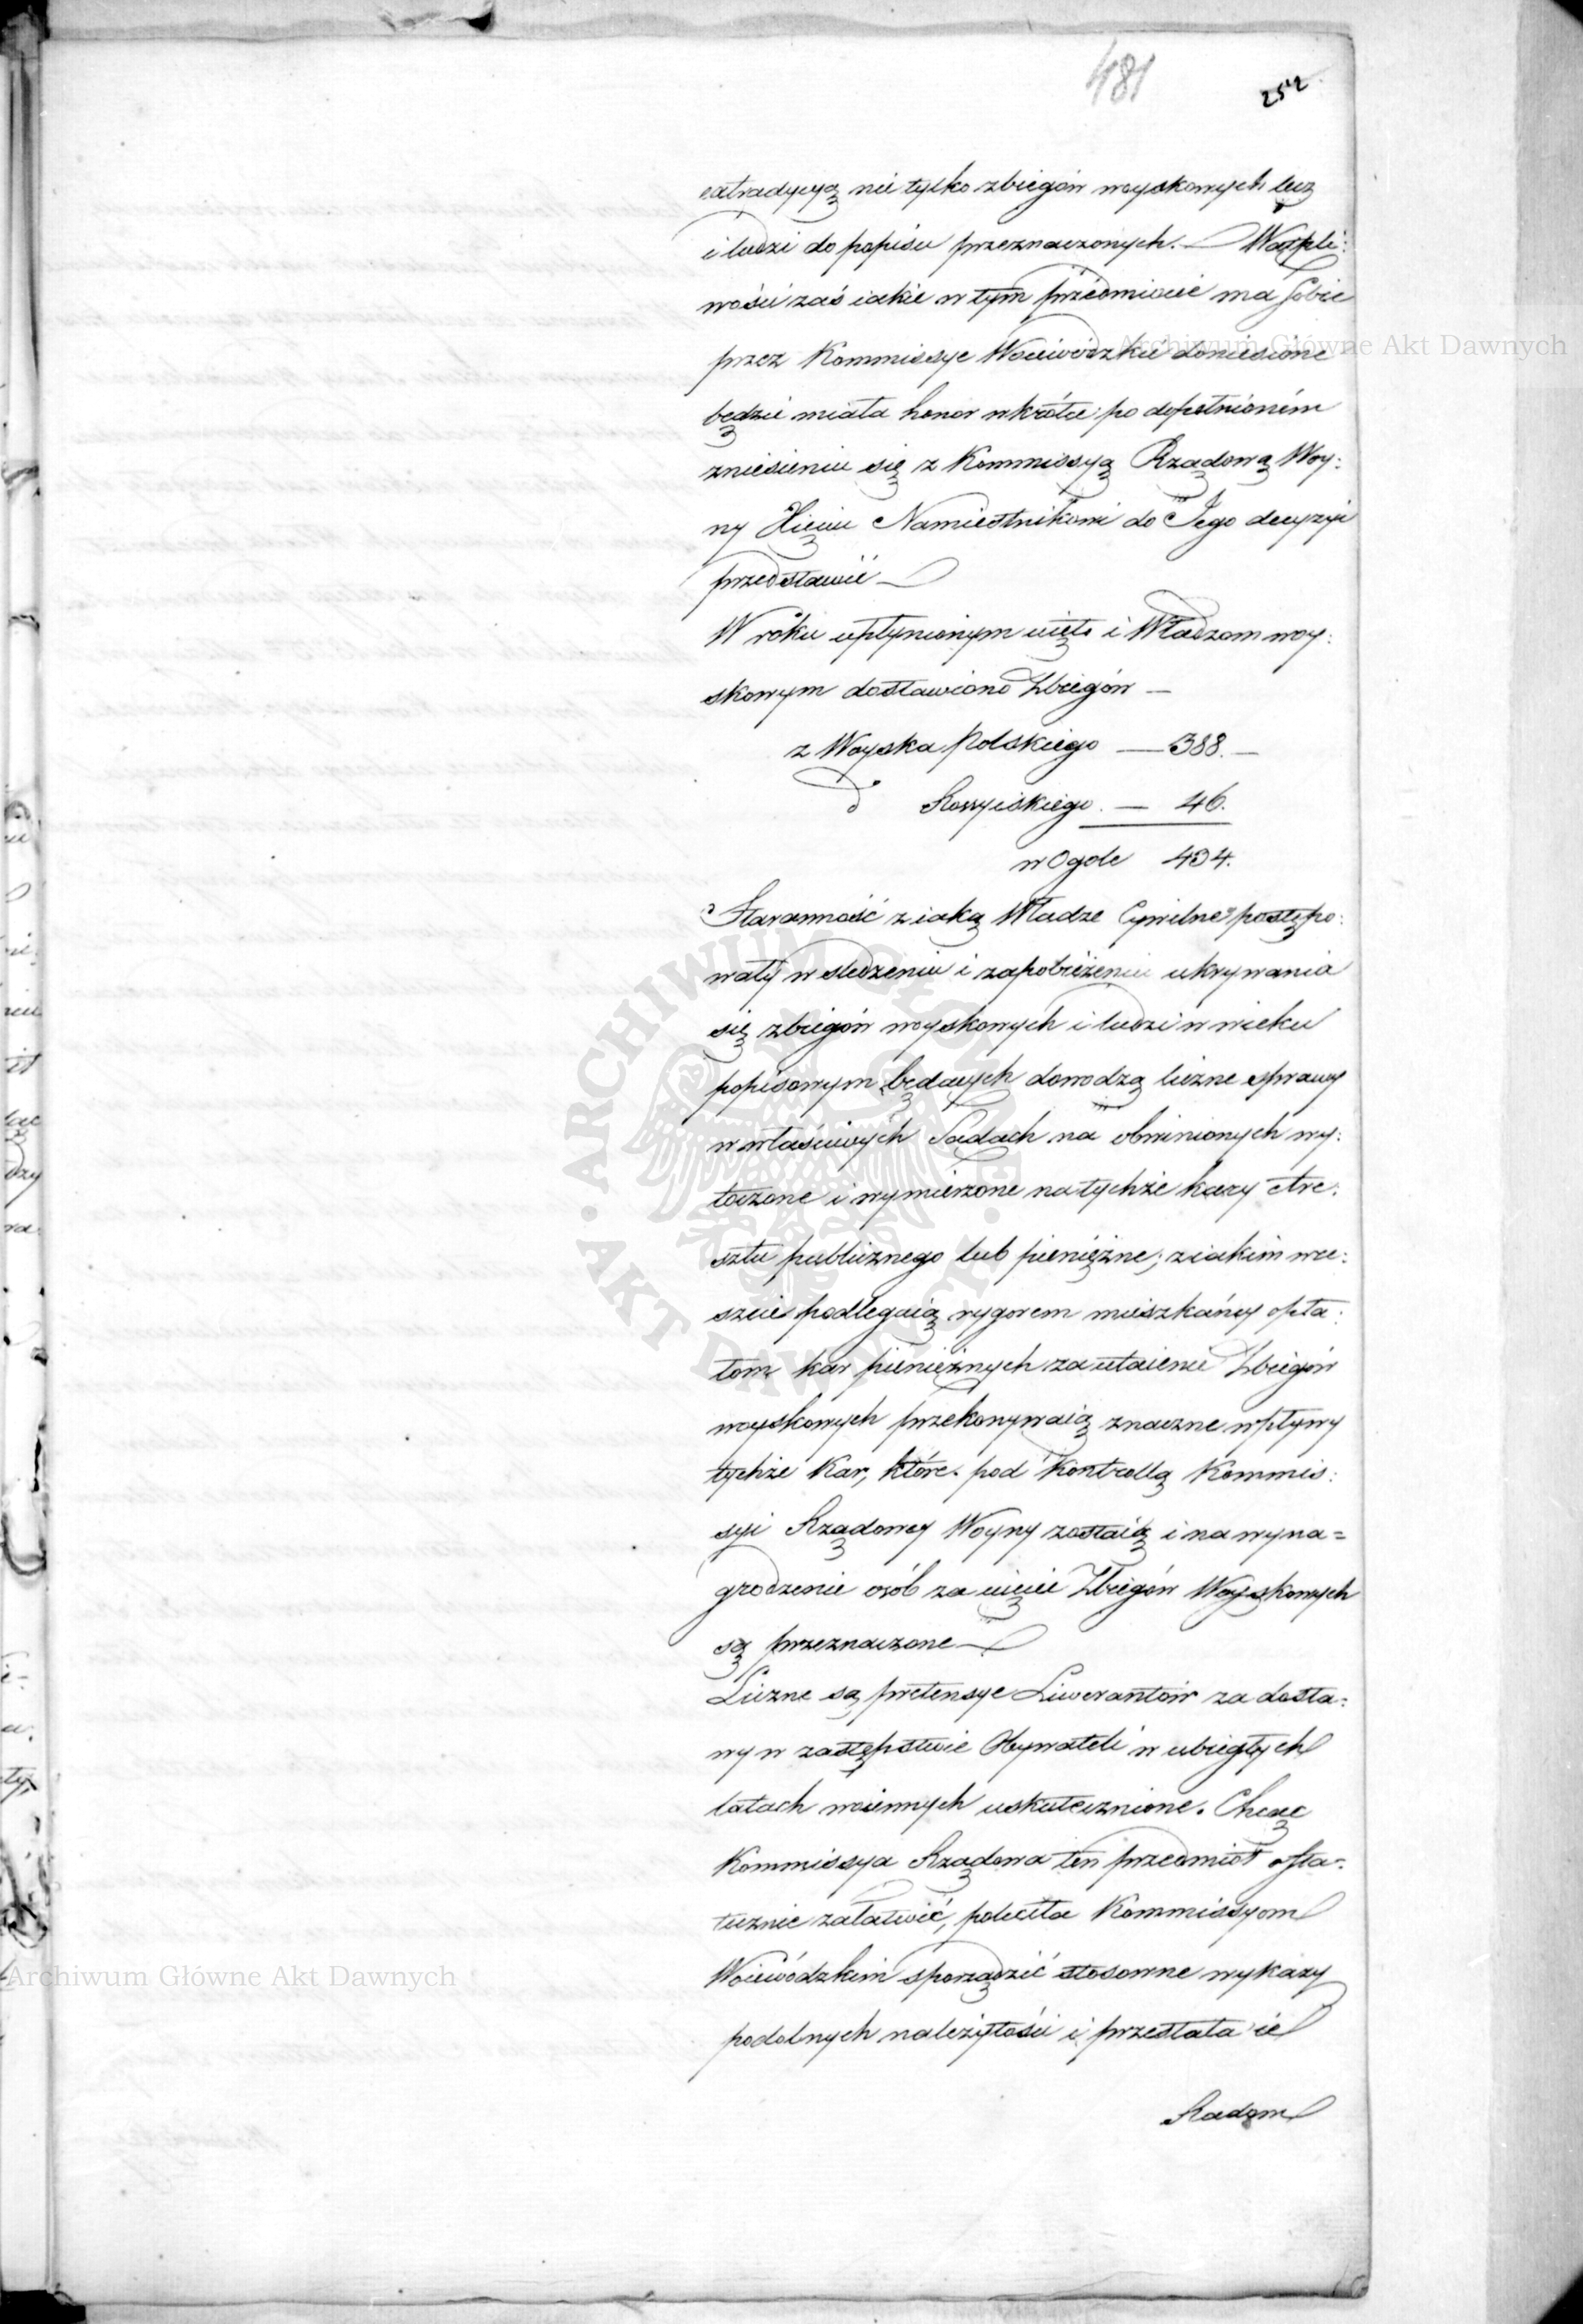 481
252
extradycyą nie tylko zbiegów woyskowych lecz
i ludzi do popisu przeznaczonych. — Wątpli:
wości zaś iakie w tym przedmiocie ma sobie
przez Kommissye Woiewódzkie doniesione
będzie miała honor wkrótce po dopełnioném
zniesieniu się z Kommissyą Rządową Woy:
ny Xięciu Namiestnikowi do Jego decyzyi
przedstawić —
W roku upłynionym uięto i Władzom woy:
skowym dostawiono Zbiegów —
z Woyska Polskiego — 388. —
d° Rossyiskiego. — 46.
w Ogole 434.
Staranność z iaką Władze Cywilne postępo:
wały w sledzeniu i zapobieżeniu ukrywania
się zbiegów woyskowych i ludzi w wieku
popisowym będących dowodzą liczne sprawy
w właściwych Sądach na obwinionych wy:
toczone i wymierzone na tychże kary Are:
sztu publicznego lub pieniężne; z iakim wre:
szcie podlegaią rygorem mieszkańcy opła:
tom kar pieniężnych za utaienie Zbiegów
woyskowych przekonywaią znaczne wpływy
tychże Kar, które pod Kontrollą Kommis:
syi Rządowey Woyny zostaią i na wyna=
grodzenie osób za uięcie Zbiegów Woyskowych
są przeznaczone —
Liczne są pretensye Liwerantów za dosta:
wy w zastępstwie Obywateli w ubiegłych
latach woiennych uskutecznione. Chcąc
Kommissya Rządowa ten przedmiot osta:
tecznie załatwić, poleciła Kommissyom
Woiewódzkim sporządzić stosowne wykazy
podobnych należytości i przesłała ie
Radom
Archiwum Główne Akt Dawnych
ARCHIWUM GŁÓWNE AKT DAWNYCH
Archiwum Główne Akt Dawnych